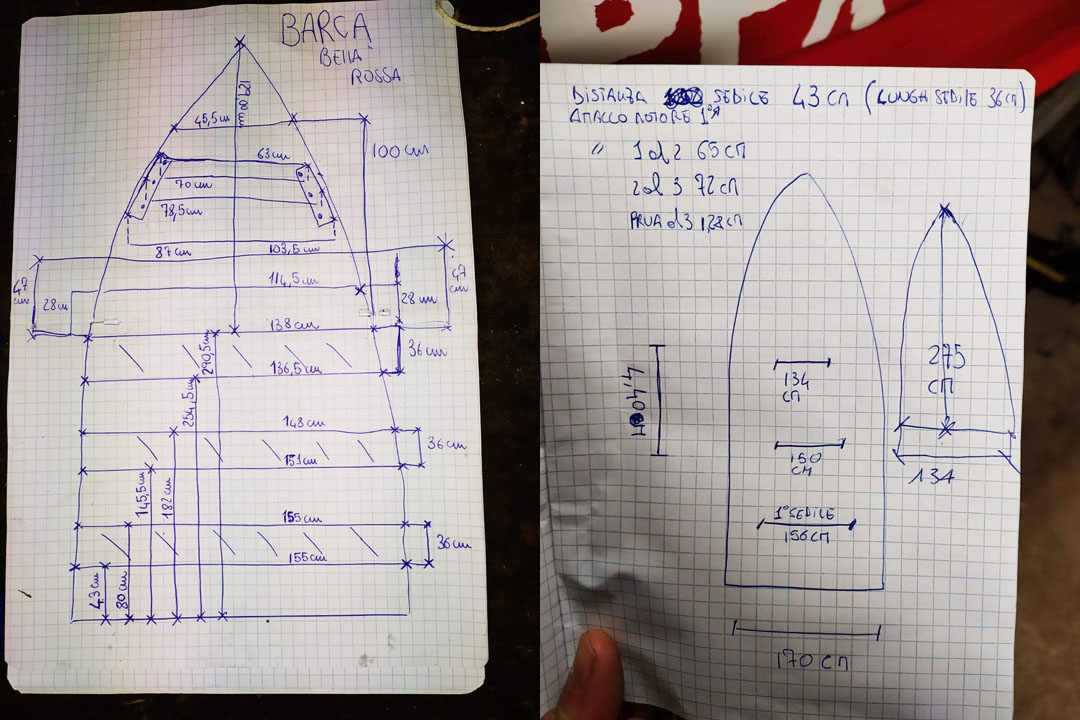 BARCA
BELLA
ROSSA
45,5cm
100 cm
63cm
70 cm
78,5cm
87cm
103,5cm
47 cm
47 cm
114,5cm
28cm
28 cm
138cm
36cm
290,5cm
136,5cm
254,5cm
148cm
36cm
151cm
145,5cm
182cm
155cm
36cm
155cm
43cm
80cm
DISTANZA SEDILE 43 CM (LUNGH SEDILE 36CM)
ATTACCO MOTORE 1°
" 1 al 2 65 CM
2 al 3 72 CM
PRUA al 3 128CM
134
CM
275
CM
4,40 M
150
CM
134
1° SEDILE
156CM
170 CM